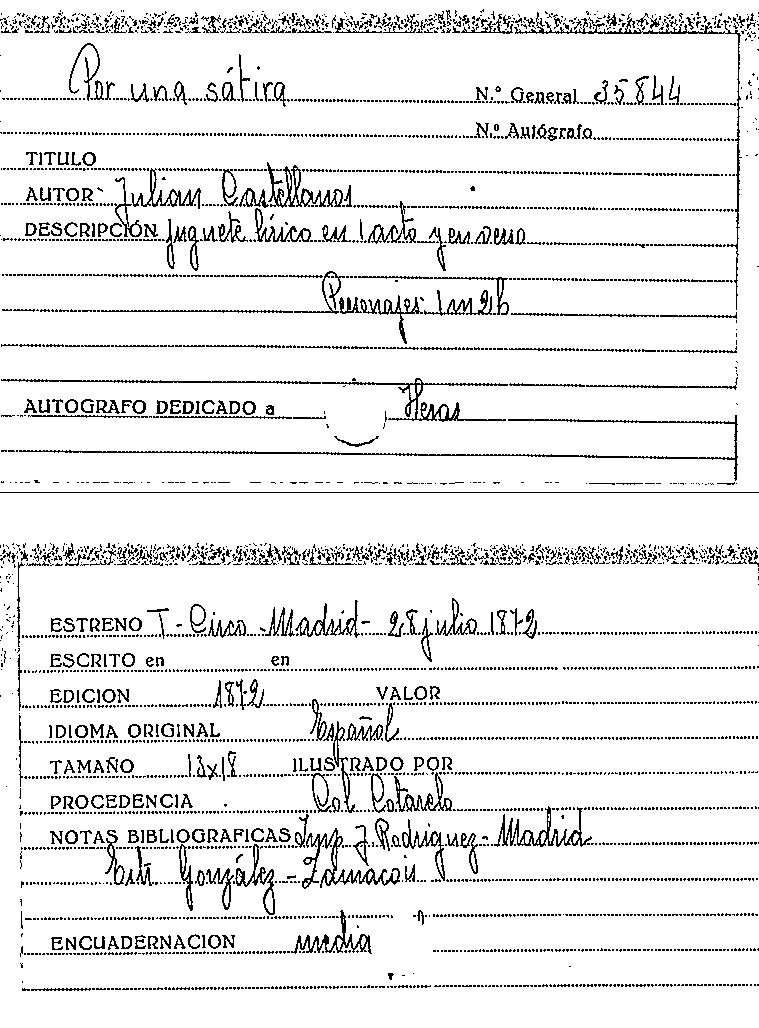 Por una sátira
N.º General 35844
N.º Autógrafo
TITULO
AUTOR Julian Castellanos
DESCRIPCIÓN Juguete lírico en 1 acto y en verso
Personajes: 1 m 2 h
AUTOGRAFO DEDICADO a Heras
ESTRENO T - Circo - Madrid - 28 julio 1872
ESCRITO en en
EDICION 1872 VALOR
IDIOMA ORIGINAL Español
TAMAÑO 13x18 ILUSTRADO POR
PROCEDENCIA Col Cotarelo
NOTAS BIBLIOGRAFICAS Imp. J. Rodriguez - Madrid
Estr González - Zamacois
ENCUADERNACION media